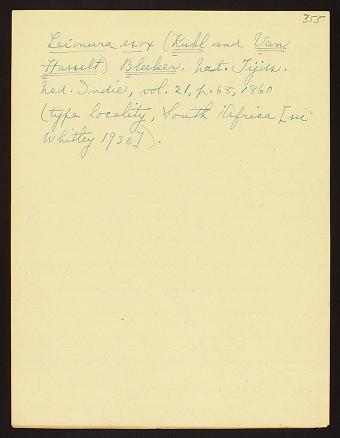 355
Leionura esox (Kuhl and Van
Hasselt) Bleeker, Nat. Tijds.
Ned. Indië, vol. 21, p. 68, 1860
(type locality, South Africa [sic
Whitley 1936]).